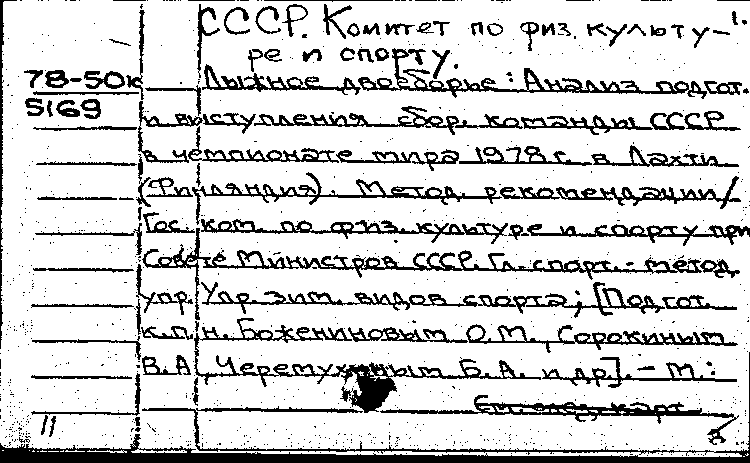 СССР. Комитет по физ. культу- 1.
ре и спорту.
78-50к Лыжное двоеборье: Анализ подгот.
5169 и выступления сбор. команды СССР
в чемпионате мира 1978 г. в Лахти
(Финляндия). Метод. рекомендации/
Гос. ком. по физ. культуре и спорту при
Совете Министров СССР. Гл. спорт.-метод.
упр. Упр. зим. видов спорта; [Подгот.
к.п.н. Божениновым О.М., Сорокиным
В.А., Черемухиным Б.А. и др]. - М.:
См. след. карт.
11